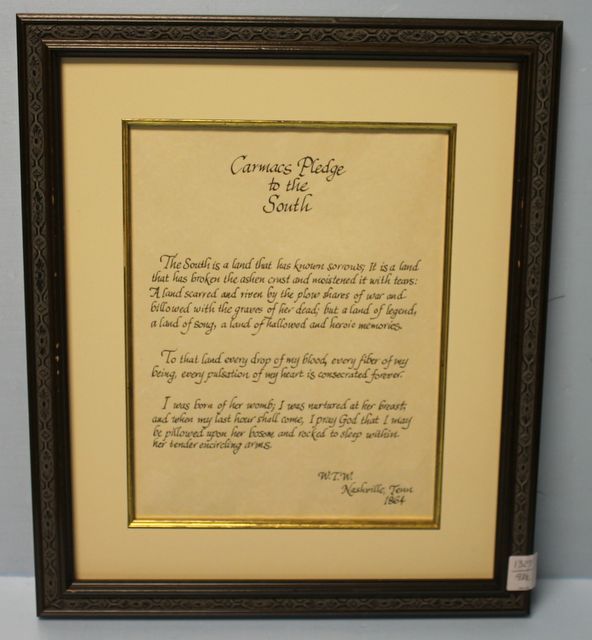 Carmacs Pledge
to the
South
The South is a land that has known sorrows; It is a land
that has broken the ashen crust and moistened it with tears:
A land scarred and riven by the plow shares of war and
billowed with the graves of her dead; but a land of legend,
a land of song, a land of hallowed and heroic memories.
To that land every drop of my blood, every fiber of my
being, every pulsation of my heart is consecrated forever.
I was born of her womb; I was nurtured at her breast;
and when my last hour shall come, I pray God that I may
be pillowed upon her bosom and rocked to sleep within
her tender encircling arms.
W.T.W.
Nashville, Tenn
1864